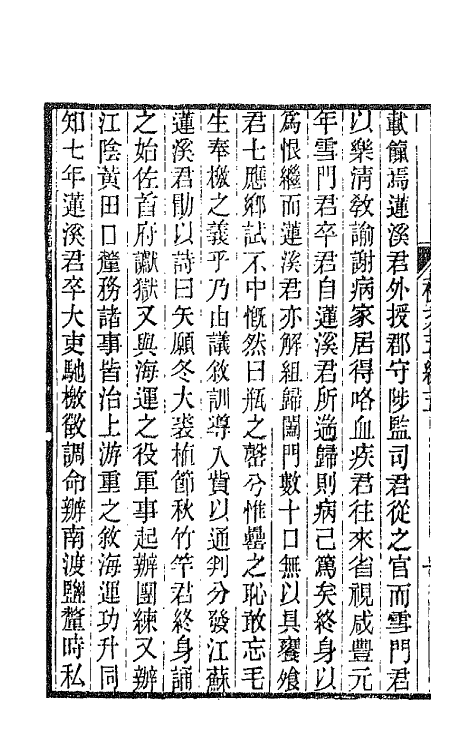 載籠焉蓮溪君外授郡守陟監司君從之官而雪門君
以樂淸敎諭謝病家居得咯血疾君往來省視咸豐元
年雪門君卒君自蓮溪君所遄歸則病已篤矣終身以
爲恨繼而蓮溪君亦解組歸闔門數十口無以具饔飧
君七應鄉試不中慨然曰瓶之罄兮惟罍之恥敢忘毛
生奉檄之義乎乃由議敘訓導入貲以通判分發江蘇
蓮溪君勛以詩曰矢願冬大裘植節秋竹竿君終身誦
之始佐首府讞獄又與海運之役軍事起辦團練又辦
江陰黃田口釐務諸事皆治上游重之敘海運功升同
知七年蓮溪君卒大吏馳檄徵調命辦南渡鹽釐時私